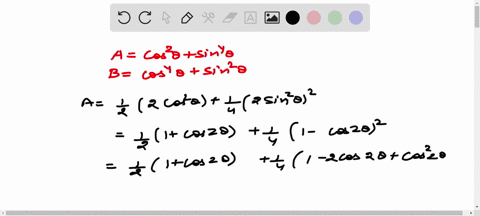 A = cos²θ + sin⁴θ
B = cos⁴θ + sin²θ
A = 1/2 (2 cos²θ) + 1/4 (2 sin²θ)²
= 1/2 (1 + cos 2θ) + 1/4 (1 - cos 2θ)²
= 1/2 (1 + cos 2θ) + 1/4 (1 - 2 cos 2θ + cos² 2θ